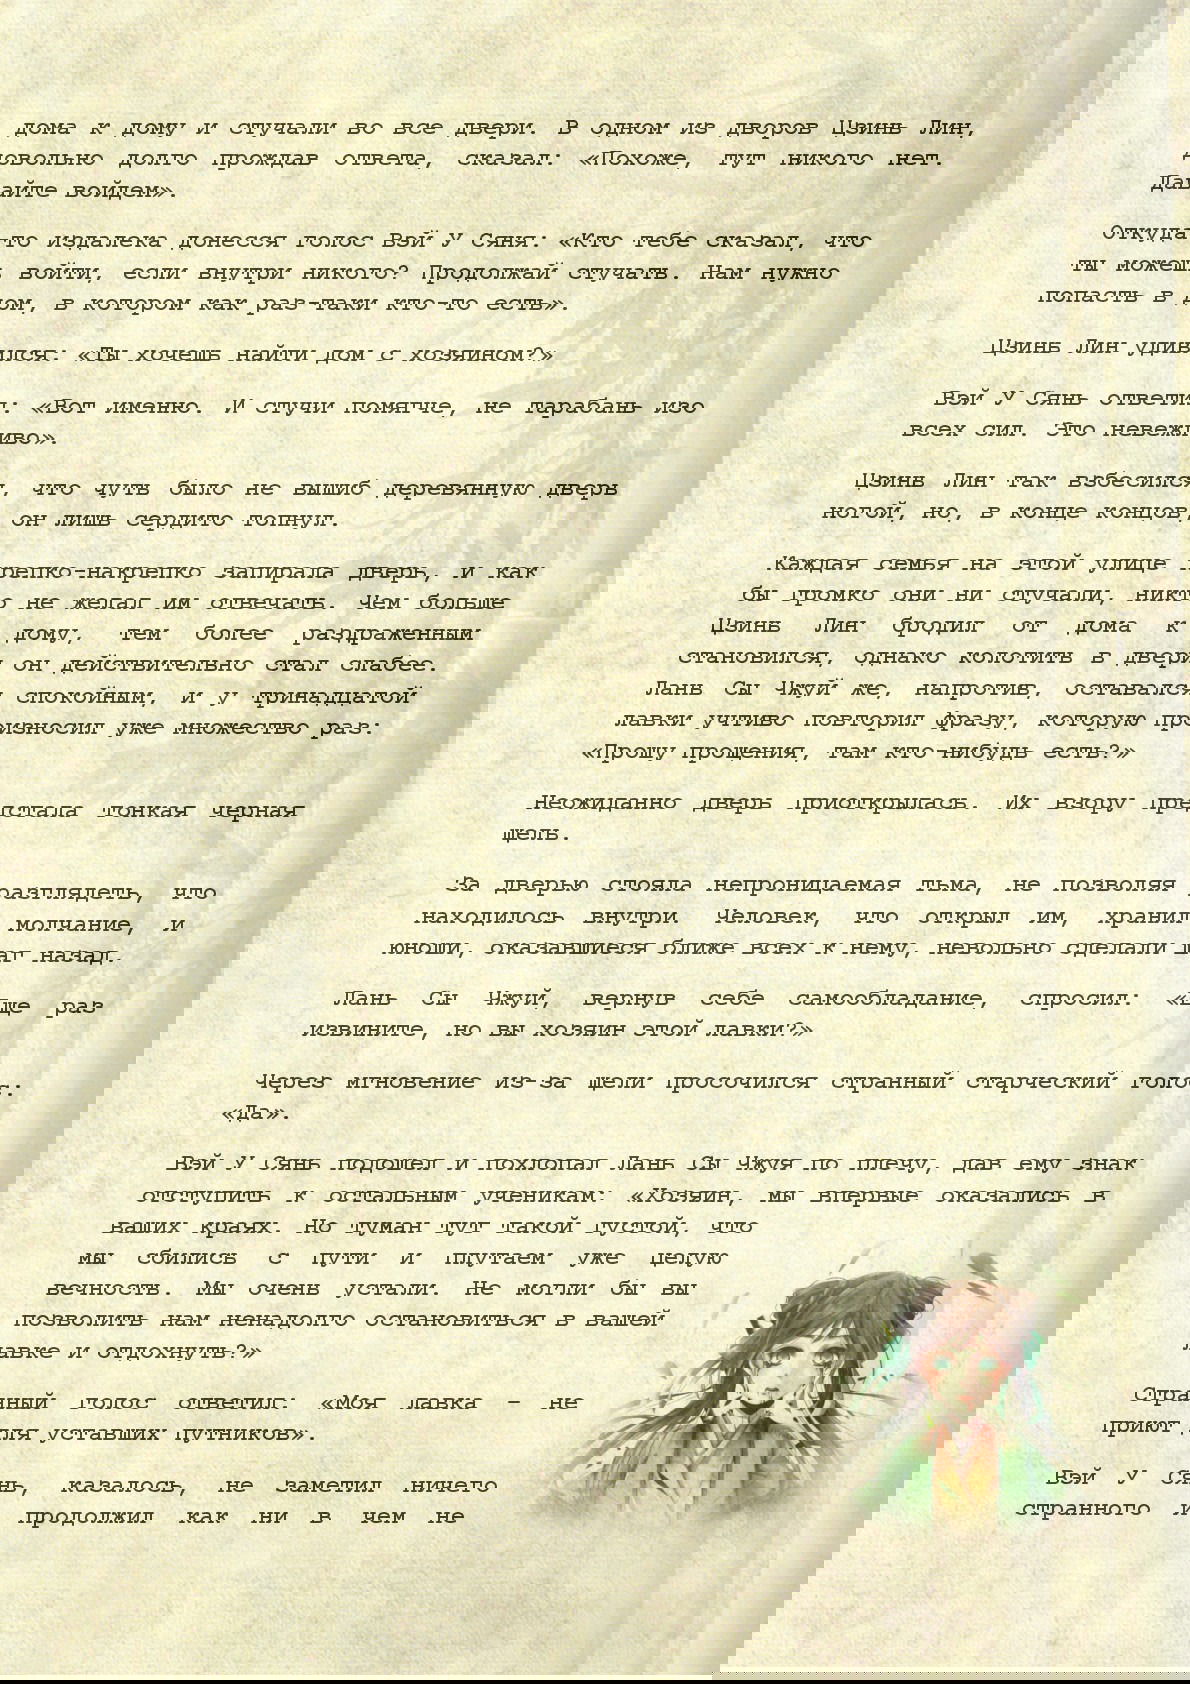 дома к дому и стучали во все двери. В одном из дворов Цзинь Лин,
довольно долго прождав ответа, сказал: «Похоже, тут никого нет.
Давайте войдем».
Откуда-то издалека донесся голос Вэй У Сяня: «Кто тебе сказал, что
ты можешь войти, если внутри никого? Продолжай стучать. Нам нужно
попасть в дом, в котором как раз-таки кто-то есть».
Цзинь Лин удивился: «Ты хочешь найти дом с хозяином?»
Вэй У Сянь ответил: «Вот именно. И стучи помягче, не тарабань изо
всех сил. Это невежливо».
Цзинь Лин так взбесился, что чуть было не вышиб деревянную дверь
ногой, но, в конце концов, он лишь сердито топнул.
Каждая семья на этой улице крепко-накрепко запирала дверь, и как
бы громко они ни стучали, никто не желал им отвечать. Чем больше
Цзинь Лин бродил от дома к дому, тем более раздраженным
становился, однако колотить в двери он действительно стал слабее.
Лань Сы Чжуй же, напротив, оставался спокойным, и у тринадцатой
лавки учтиво повторил фразу, которую произносил уже множество раз:
«Прошу прощения, там кто-нибудь есть?»
Неожиданно дверь приоткрылась. Их взору предстала тонкая черная
щель.
За дверью стояла непроницаемая тьма, не позволяя разглядеть, что
находилось внутри. Человек, что открыл им, хранил молчание, и
юноши, оказавшиеся ближе всех к нему, невольно сделали шаг назад.
Лань Сы Чжуй, вернув себе самообладание, спросил: «Еще раз
извините, но вы хозяин этой лавки?»
Через мгновение из-за щели просочился странный старческий голос:
«Да».
Вэй У Сянь подошел и похлопал Лань Сы Чжуя по плечу, дав ему знак
отступить к остальным ученикам: «Хозяин, мы впервые оказались в
ваших краях. Но туман тут такой густой, что
мы сбились с пути и плутаем уже целую
вечность. Мы очень устали. Не могли бы вы
позволить нам ненадолго остановиться в вашей
лавке и отдохнуть?»
Странный голос ответил: «Моя лавка – не
приют для уставших путников».
Вэй У Сянь, казалось, не заметил ничего
странного и продолжил как ни в чем не